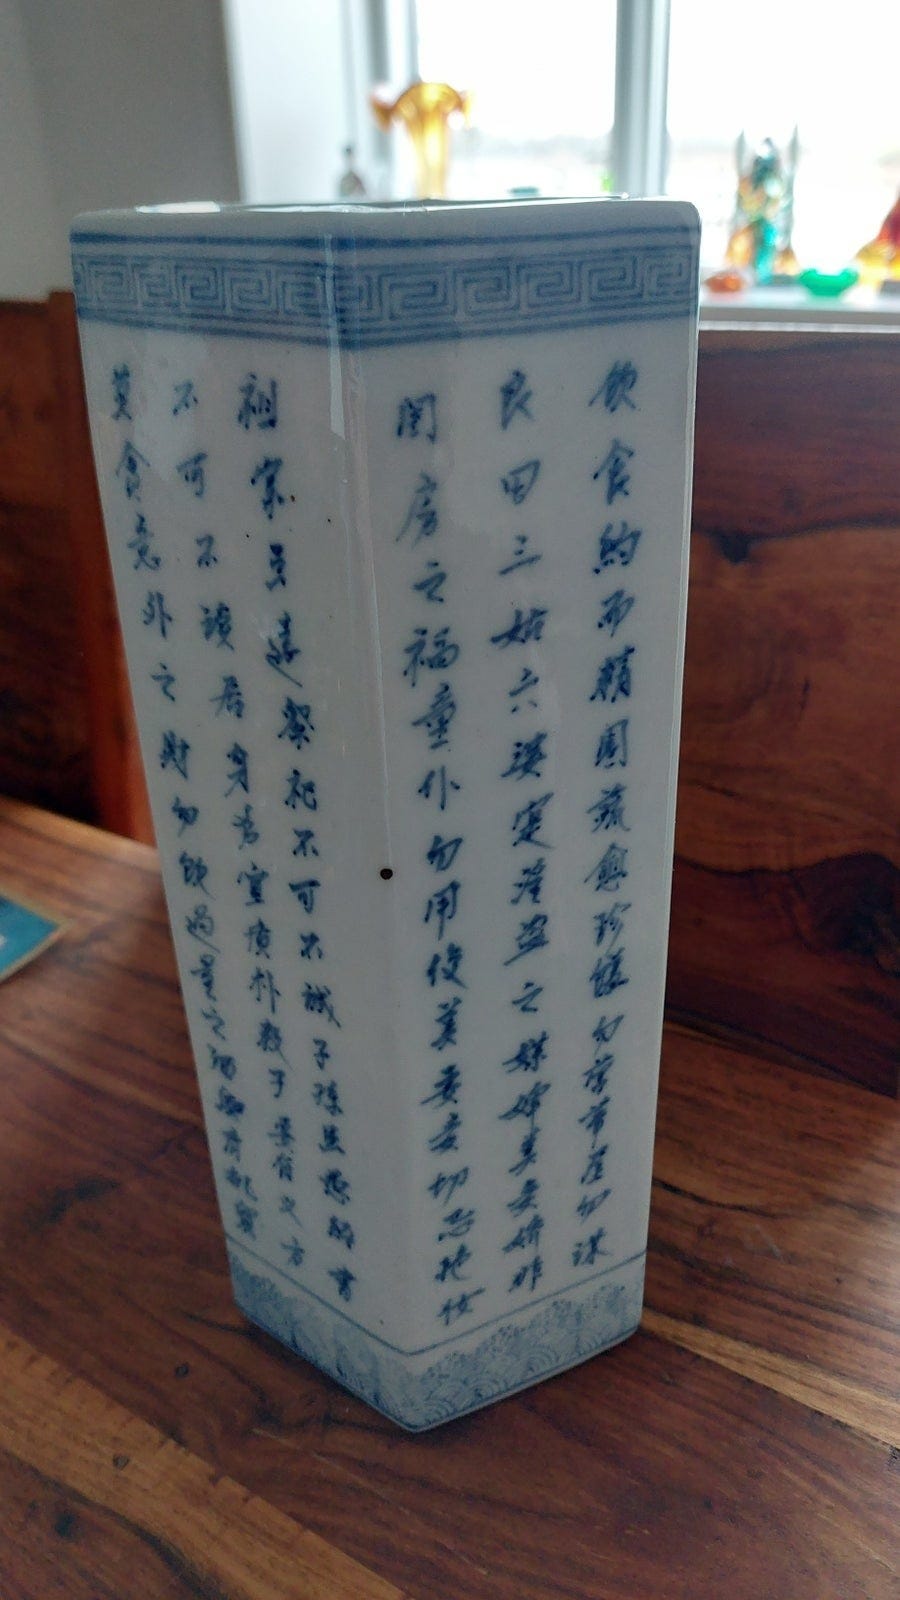 飲食約而精園蔬愈珍饈勿營華屋勿謀
良田三姑六婆寔淫盗之媒婢美妾嬌非
閨房之福童仆勿用俊美妻妾切忌艳妆
祖宗虽遠祭祀不可不誠子孫虽愚經書
不可不讀居身务宜質朴教子要有义方
莫貪意外之財勿飲過量之酒